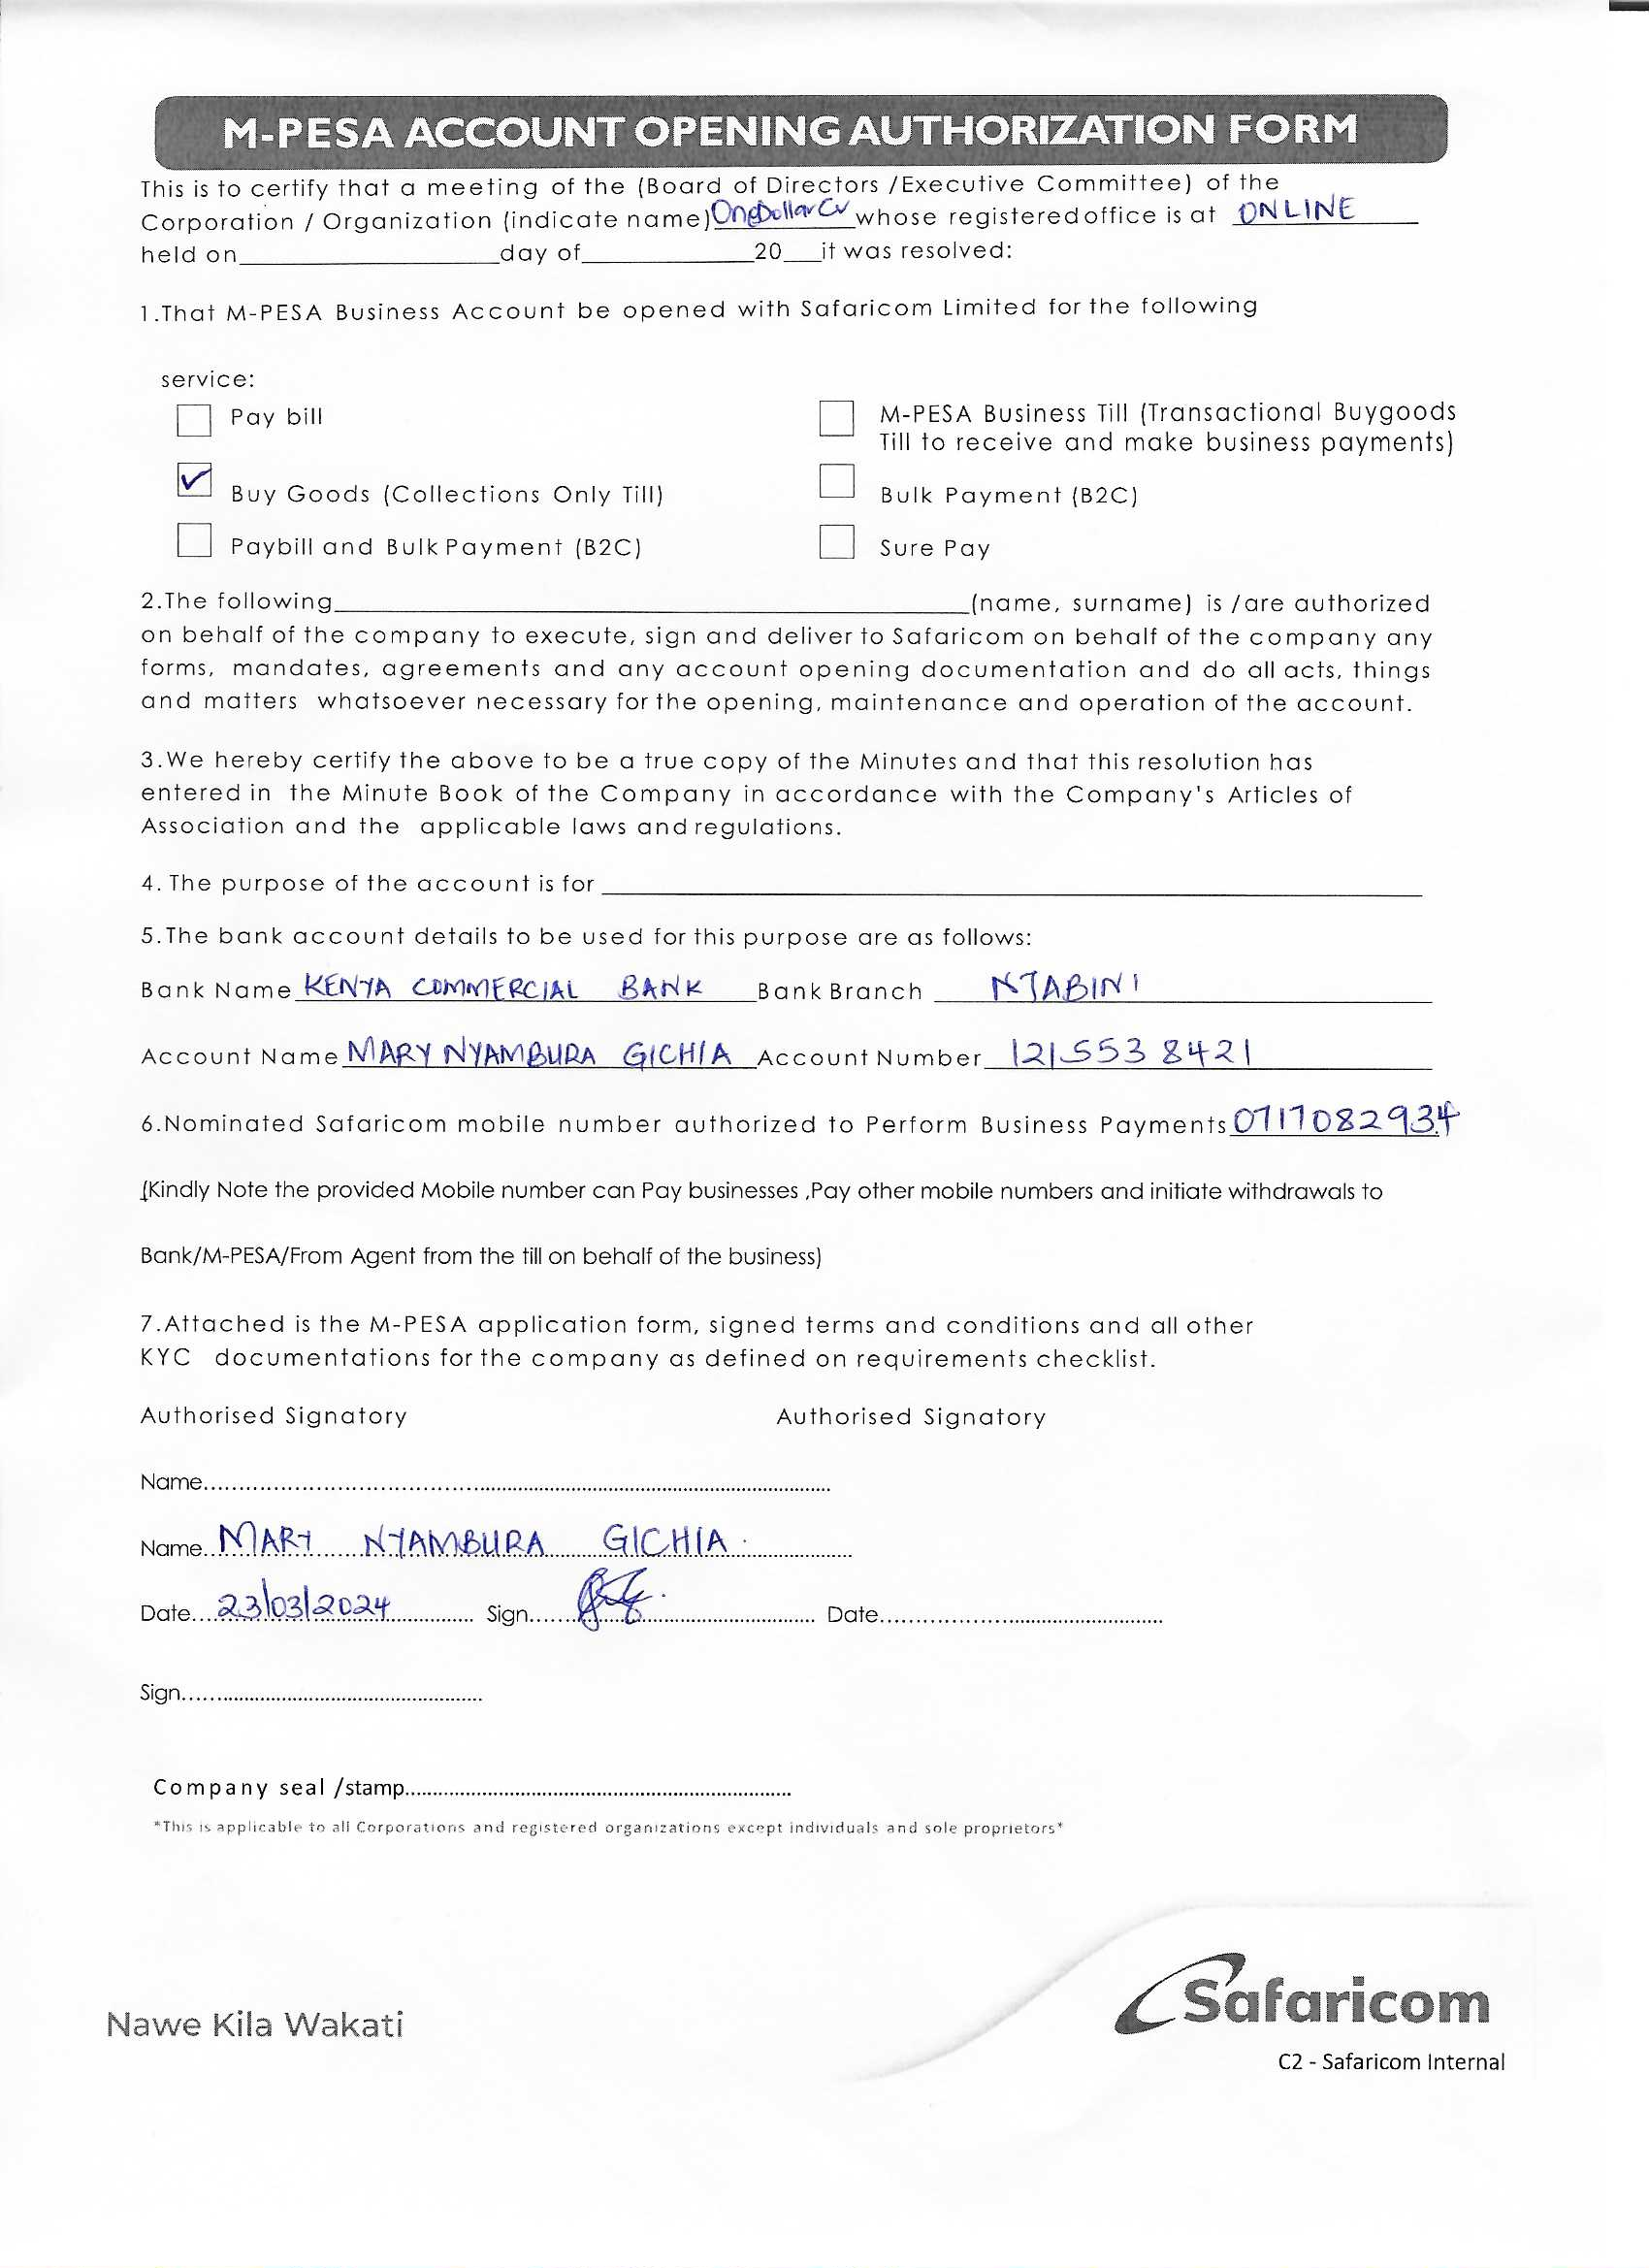 M-PESA ACCOUNT OPENING AUTHORIZATION FORM
This is to certify that a meeting of the (Board of Directors /Executive Committee) of the
Corporation / Organization (indicate name) OneDollarCv whose registered office is at ONLINE
held on____day of____20__it was resolved:
1.That M-PESA Business Account be opened with Safaricom Limited for the following
service:
Pay bill
M-PESA Business Till (Transactional Buygoods
Till to receive and make business payments)
✓ Buy Goods (Collections Only Till)
Bulk Payment (B2C)
Paybill and Bulk Payment (B2C)
Sure Pay
2.The following____(name, surname) is /are authorized
on behalf of the company to execute, sign and deliver to Safaricom on behalf of the company any
forms, mandates, agreements and any account opening documentation and do all acts, things
and matters whatsoever necessary for the opening, maintenance and operation of the account.
3.We hereby certify the above to be a true copy of the Minutes and that this resolution has
entered in the Minute Book of the Company in accordance with the Company's Articles of
Association and the applicable laws and regulations.
4. The purpose of the account is for____
5.The bank account details to be used for this purpose are as follows:
Bank Name KENYA COMMERCIAL BANK Bank Branch NJABINI
Account Name MARY NYAMBURA GICHIA Account Number 1215538421
6.Nominated Safaricom mobile number authorized to Perform Business Payments 0717082934
(Kindly Note the provided Mobile number can Pay businesses ,Pay other mobile numbers and initiate withdrawals to
Bank/M-PESA/From Agent from the till on behalf of the business)
7.Attached is the M-PESA application form, signed terms and conditions and all other
KYC documentations for the company as defined on requirements checklist.
Authorised Signatory Authorised Signatory
Name....
Name.. MARY NYAMBURA GICHIA
Date... 23/03/2024 Sign.... Date....
Sign....
Company seal /stamp....
*This is applicable to all Corporations and registered organizations except individuals and sole proprietors*
Safaricom
Nawe Kila Wakati
C2 - Safaricom Internal